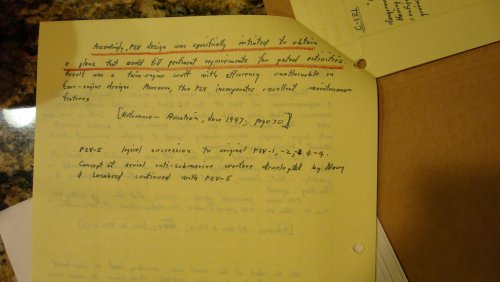 Accordingly, P2V design was specifically initiated to obtain
a plane that would fill pertinent requirements for patrol activities.
Result was a twin-engine craft with efficiency unattainable in
four-engine designs. Moreover, the P2V incorporates excellent maintenance
features
[Reference - Aviation, June 1947, page 70]
P2V-5 logical succession to original P2V-1, -2, -3 & -4.
Concept of aerial anti-submarine warfare developed by Navy
& Lockheed continued with P2V-5